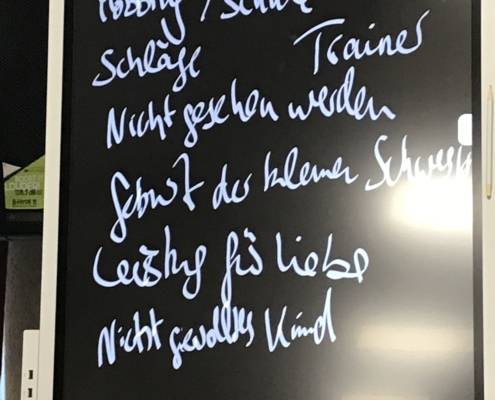 Mobbing / Schule
Schläge Trainer
Nicht gesehen werden
Geburt der kleiner Schwester
Leistung für Liebe
Nicht gewolltes Kind